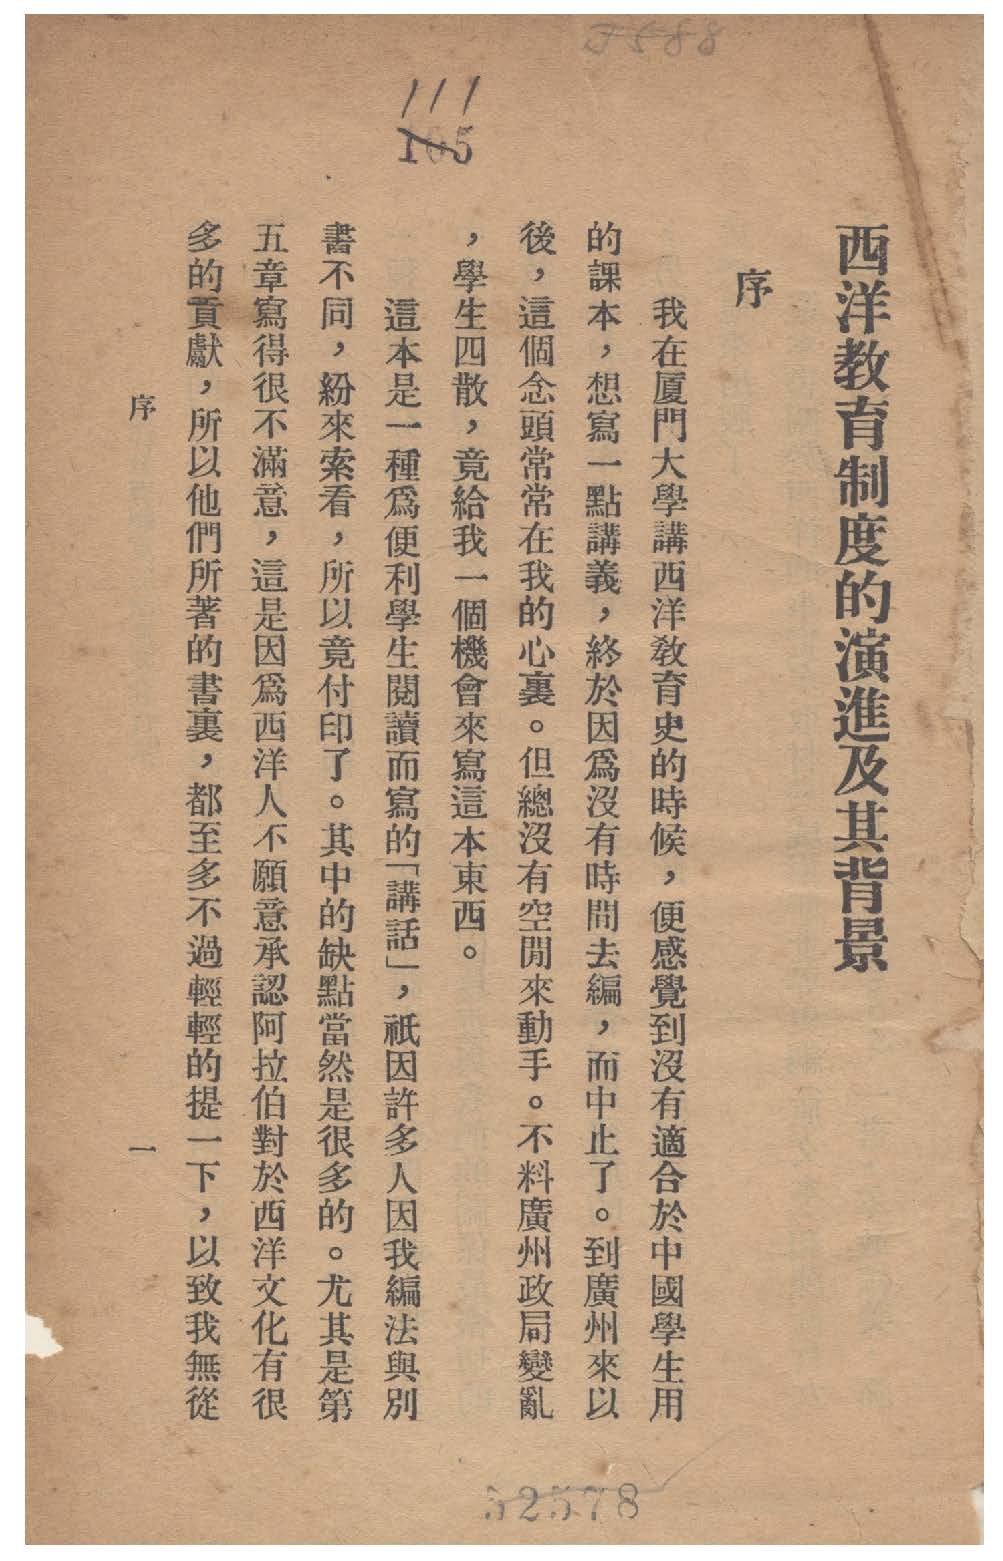 J588
111
105
西洋教育制度的演進及其背景
序
我在厦門大學講西洋敎育史的時候，便感覺到沒有適合於中國學生用
的課本，想寫一點講義，終於因爲沒有時間去編，而中止了。到廣州來以
後，這個念頭常常在我的心裏。但總沒有空閒來動手。不料廣州政局變亂
，學生四散，竟給我一個機會來寫這本東西。
這本是一種爲便利學生閱讀而寫的「講話」，祇因許多人因我編法與別
書不同，紛來索看，所以竟付印了。其中的缺點當然是很多的。尤其是第
五章寫得很不滿意，這是因爲西洋人不願意承認阿拉伯對於西洋文化有很
多的貢獻，所以他們所著的書裏，都至多不過輕輕的提一下，以致我無從
序
一
52578